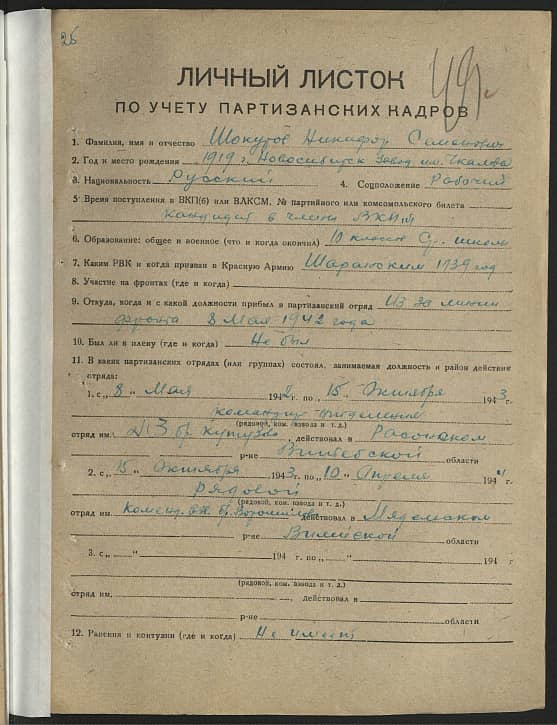 26
ЛИЧНЫЙ ЛИСТОК
ПО УЧЕТУ ПАРТИЗАНСКИХ КАДРОВ
1. Фамилия, имя и отчество Шокуров Никифор Семенович
2. Год и место рождения 1919 г. Новосибирск Завод им. Чкалова
3. Национальность Русский 4. Соцположение Рабочий
5. Время поступления в ВКП(б) или ВЛКСМ, № партийного или комсомольского билета
кандидат в члены
6. Образование: общее и военное (что и когда окончил) 10 классов Ср. школы
7. Каким РВК и когда призван в Красную Армию 1939 год
8. Участие на фронтах (где и когда)
9. Откуда, когда и с какой должности прибыл в партизанский отряд Из за линии
фронта 8 Мая 1942 года
10. Был ли в плену (где и когда) Не был
11. В каких партизанских отрядах (или группах) состоял, занимаемая должность и район действия
отряда:
1. с „8„ Мая 1942 г. по „15„ Октября 1943 г.
командир отделения
(рядовой, ком. взвода и т. д.)
отряд им. бр. Кутузова, действовал в Расонском
р-не Витебской области
2. с „15„ Октября 1943 г. по „10„ Апреля 194
рядовой
(рядовой, ком. взвода и т. д.)
отряд им. бр. Ворошилова действовал в Мядельском
р-не Вилейской области
3. с „ „ 194 г. по „ „ 194 г
(рядовой, ком. взвода и т. д.)
отряд им. , действовал в
р-не области
12. Ранения и контузии (где и когда) Не имеет